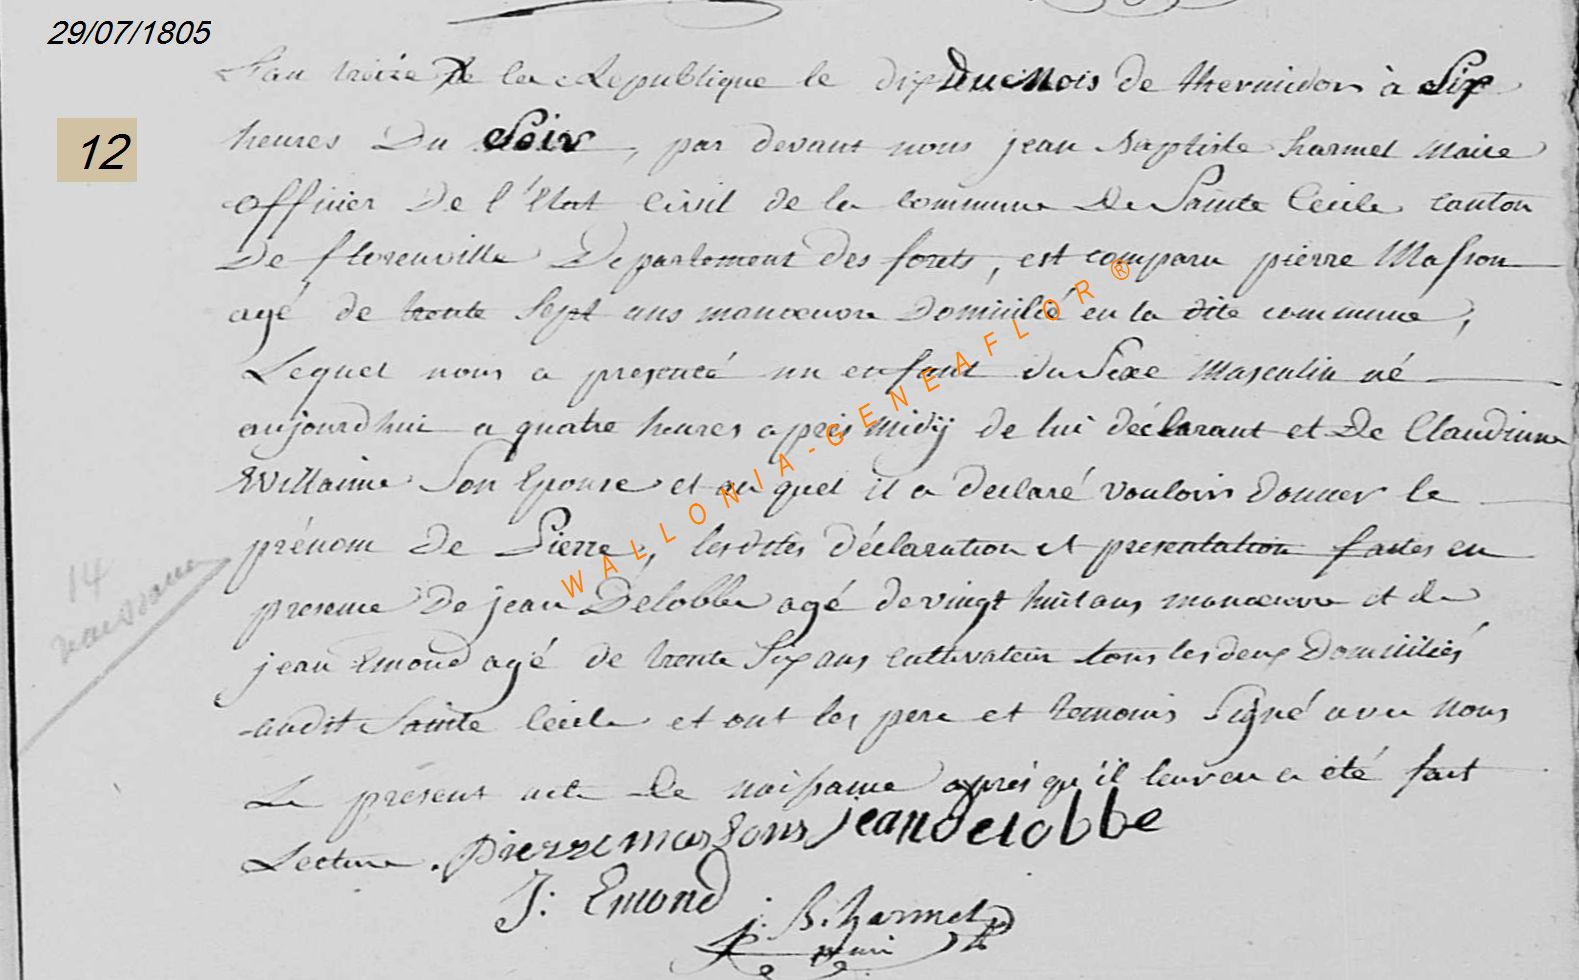 29/07/1805
12
L'an treize de la Republique le dix du Mois de thermidor à Six
heures Du Soir, par devant nous jean Baptiste harmel Maire
officier De l'état Civil de la commune De Sainte Cecile canton
De florenville Departement des forets, est comparu pierre Masson
agé de trente sept ans manoeuvre Domicilié en la dite commune,
Lequel nous a presenté un enfant du Sexe Masculin né
aujourd'hui a quatre heures après midij de lui déclarant et De Claudinne
Willaime Son Epouse et au quel il a declaré vouloir donner le
prénom de Pierre, lesdites déclaration et presentation faites en
presence De jean Delobbe agé de vingt huit ans manoeuvre et de
jean Emond agé de trente Six ans cultivateur tous les deux Domiciliés
audit Sainte Cécile et ont les pere et temoins Signé avec Nous
Le présent acte De naissance après qu'il leur en a été fait
Lecture. pierre massons jean Delobbe
J: Emond
j. B. harmel
14
naissance
WALLONIA-GENEAFLOR ®